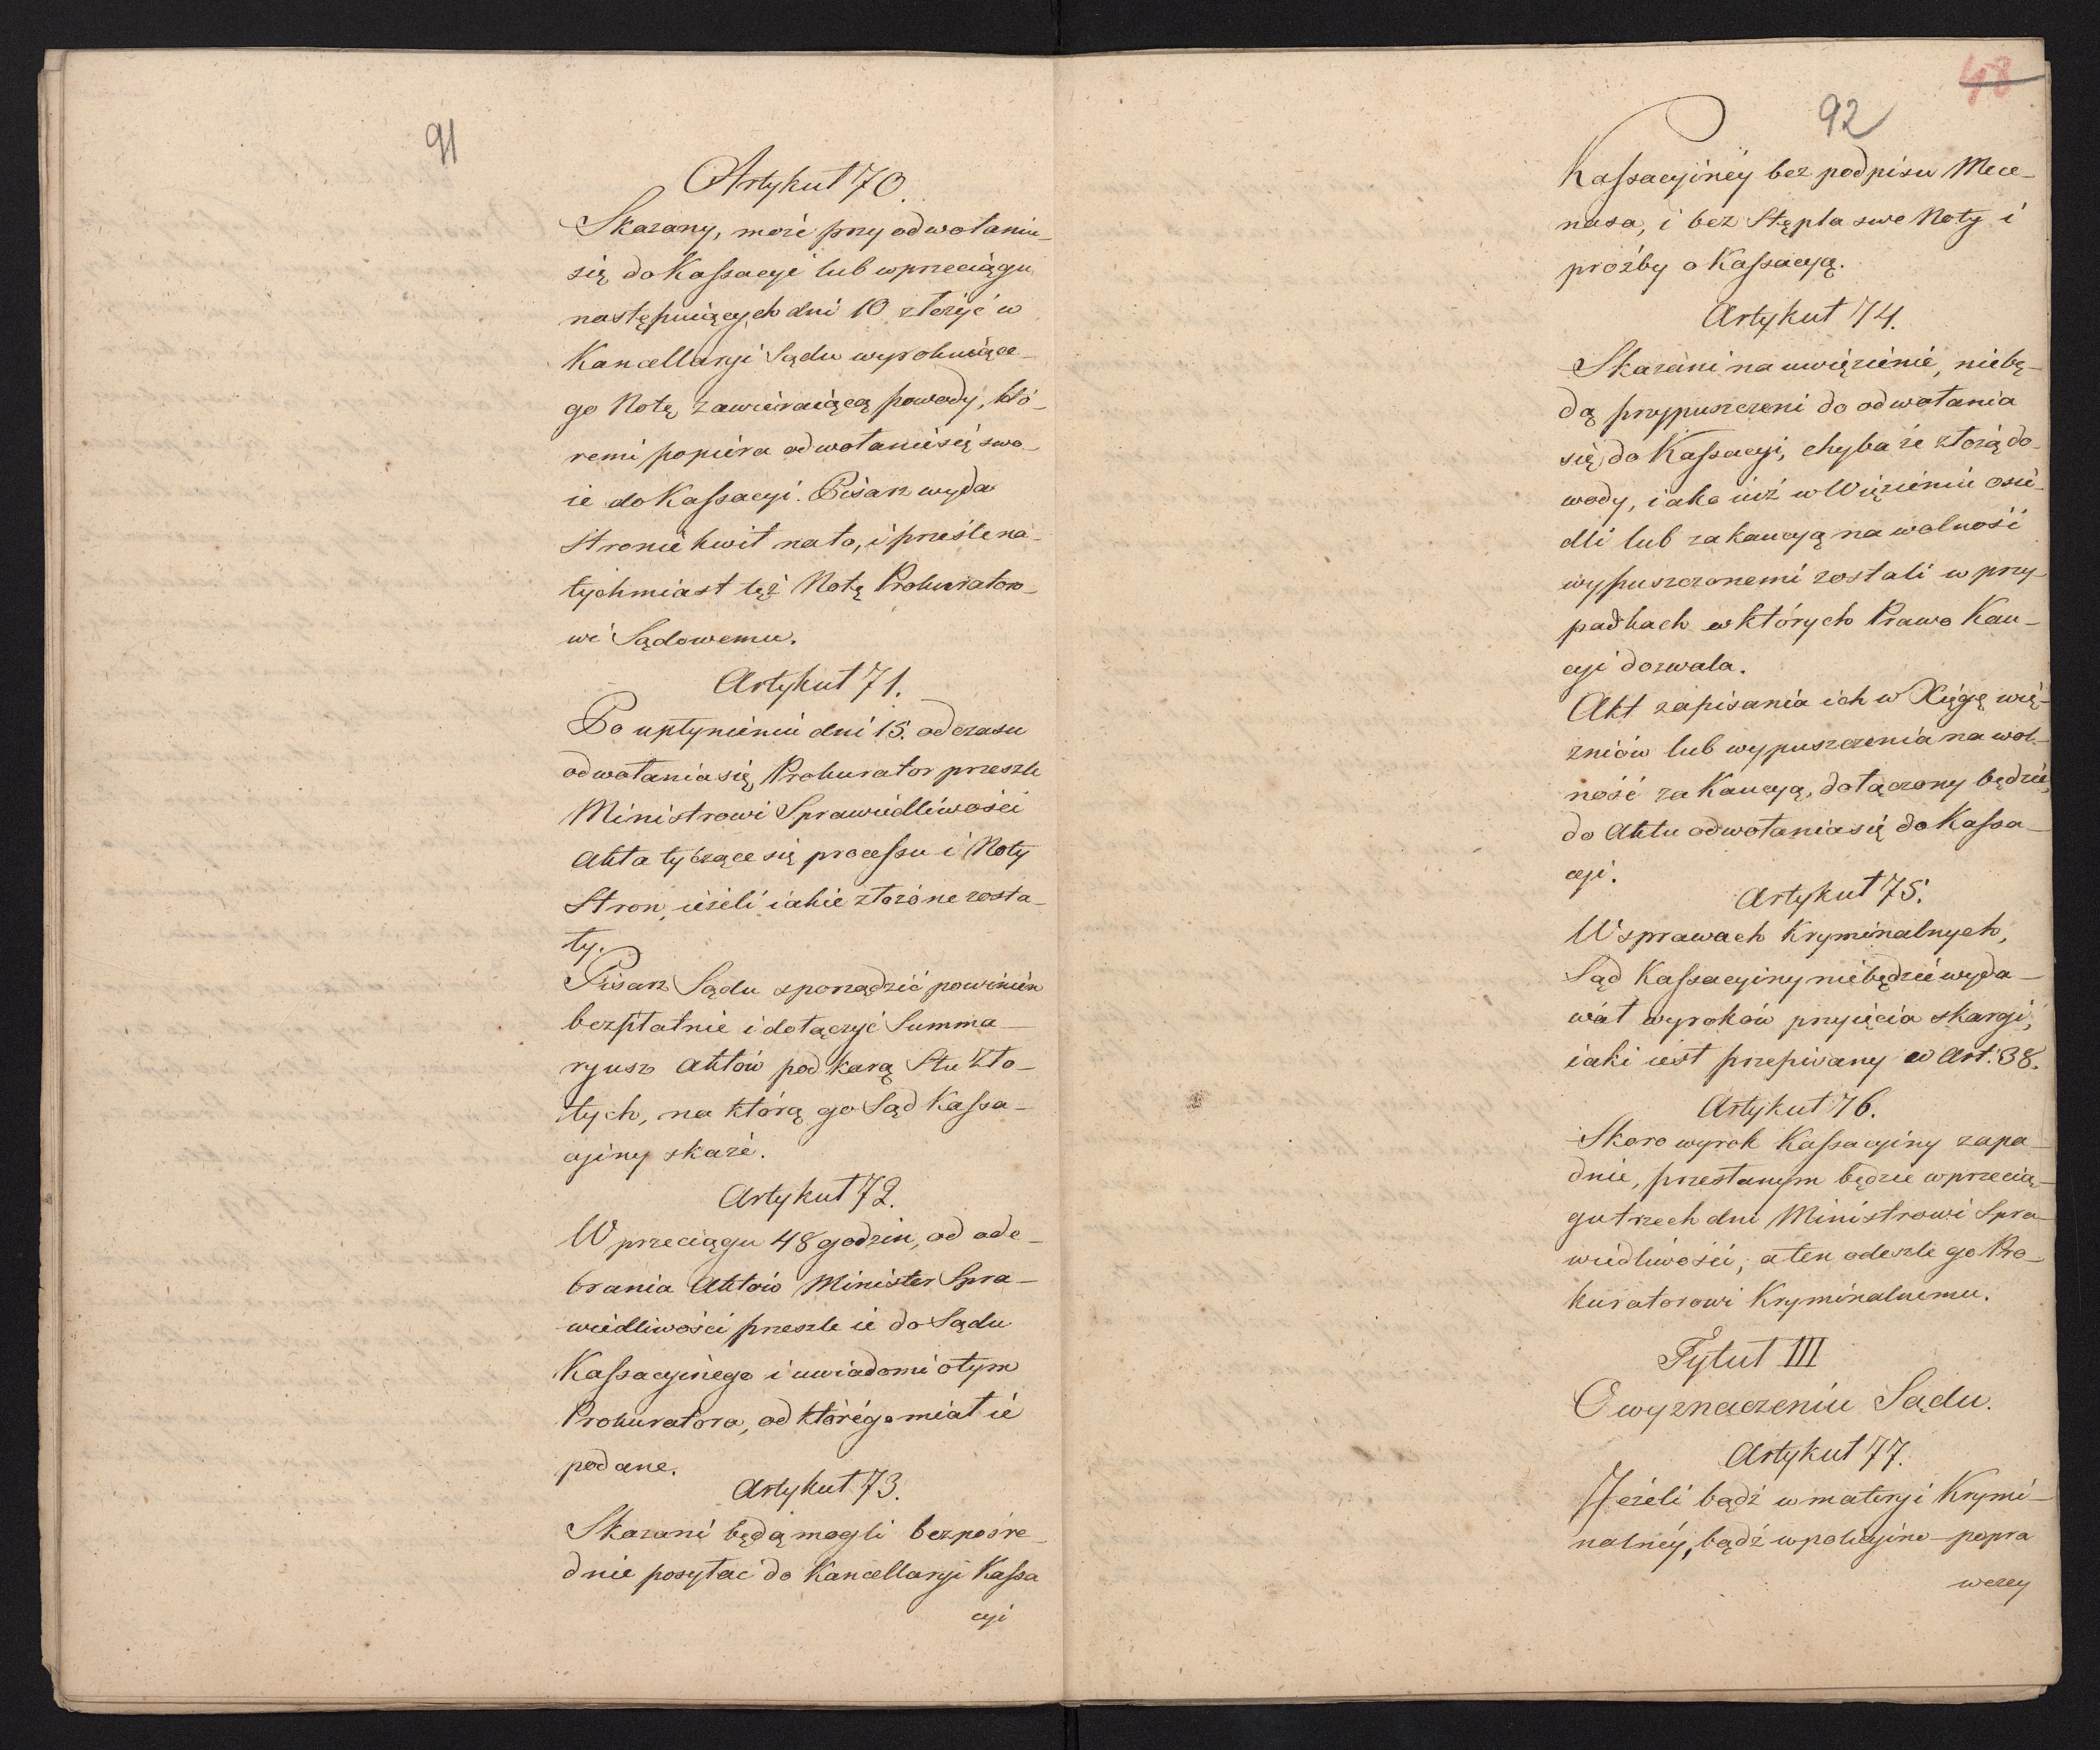 91
Artykuł 70.
Skazany, może przy odwołaniu
się do Kassacyi lub w przeciągu
następuiących dni 10 złożyć w
Kancellaryi Sądu wyrokuiące-
go Notę zawieraiącą powody, któ-
remi popiera odwołanie się swo-
ie do Kassacyi. Pisarz wyda
stronie kwit na to, i prześle na-
tychmiast tęż Notę Prokurator-
wi Sądowemu.
Artykuł 71.
Po upłynieniu dni 15. od czasu
odwołania się, Prokurator przeszle
Ministrowi Sprawiedliwości
Akta tyczące się processu i Noty
Stron, ieżeli iakie złożone zosta-
ły.
Pisarz Sądu sporządzić powinien
bezpłatnie i dołączyć Summa-
ryusz Aktów pod karą Stu Zło-
tych, na którą go Sąd Kassa-
cyiny skaże.
Artykuł 72.
W przeciągu 48 godzin, od ode-
brania Aktów Minister Spra-
wiedliwości przeszle ie do Sądu
Kassacyinego i uwiadomi o tym
Prokuratora, od którego miał ie
podane.
Artykuł 73.
Skazani będą mogli bezpośre-
dnie posyłać do Kancellaryi Kassa
cyi
48
92
Kassacyinéy bez podpisu Mece-
nasa, i bez Stępla swe Noty i
prózby o Kassacyą.
Artykuł 74.
Skazani na uwięzienie, niebę-
dą przypuszczeni do odwołania
się do Kassacyi, chyba że złożą do-
wody, iako iuż w Więzieniu osie-
dli lub za kaucyą na wolność
wypuszczonemi zostali w przy-
padkach w których Prawo Kau-
cyi dozwala.
Akt zapisania ich w Xięgę wię-
zniów lub wypuszczenia na wol-
ność za Kaucyą, dołączony będzie,
do Aktu odwołania się do Kassa-
cyi.
Artykuł 75.
W sprawach Kryminalnych,
Sąd Kassacyiny niebędzie wyda-
wał wyroków przyięcia skargi,
iaki iest przepisany w Art: 38.
Artykuł 76.
Skoro wyrok Kassacyiny zapa-
dnie, przesłanym będzie w przecią-
gu trzech dni Ministrowi Spra-
wiedliwości, a ten odeszle go Pro-
kuratorowi Kryminalnemu.
Tytuł III
O wyznaczeniu Sądu.
Artykuł 77.
Jeżeli bądź w materyi Krymi-
nalnéy, bądź w policyino-popra
wczey